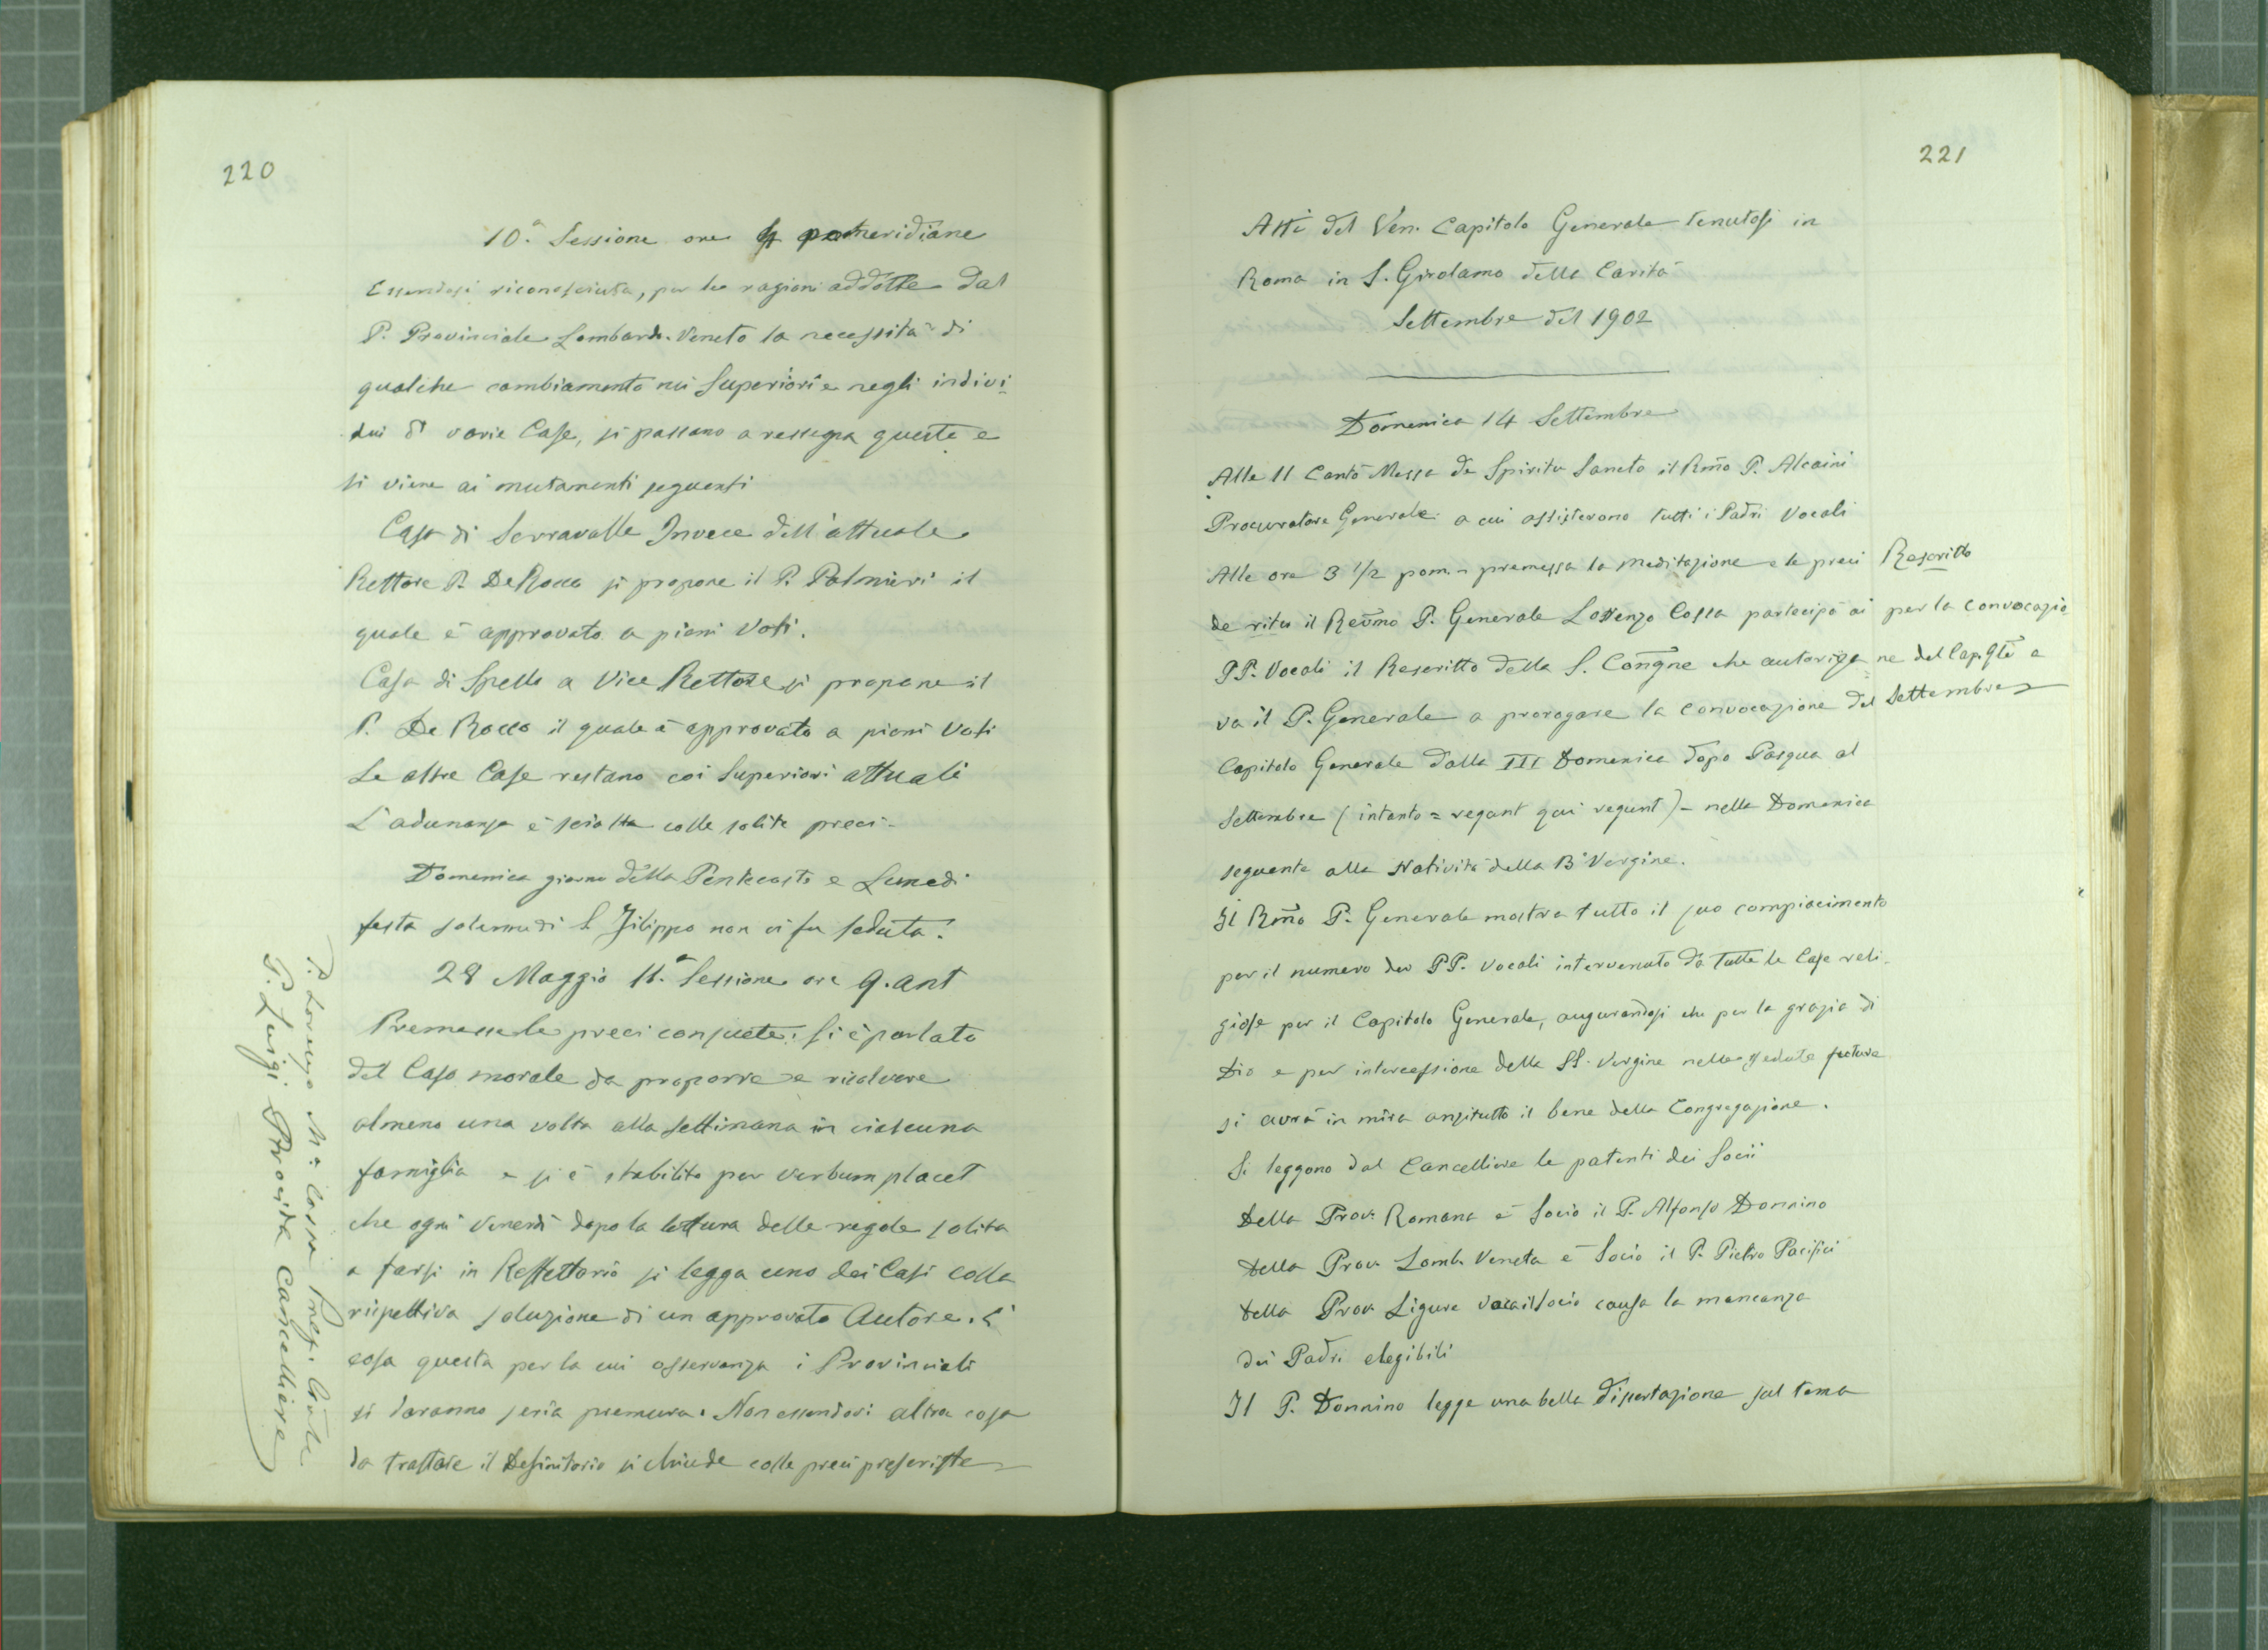 220
10.ª Sessione ore 4 pomeridiane
Essendosi riconosciuta, per le ragioni addotte dal
P. Provinciale Lombardo-Veneto la necessità di
qualche cambiamento nei Superiori e negli indivi-
dui di varie Case, si passano a rassegna queste e
si viene ai mutamenti seguenti
Casa di Serravalle Invece dell'attuale
Rettore P. De Rocco si propone il P. Palmieri il
quale è approvato a pieni voti.
Casa di Spello a Vice Rettore si propone il
P. De Rocco il quale è approvato a pieni voti
Le altre Case restano coi Superiori attuali
L'adunanza è sciolta colle solite preci.
Domenica giorno della Pentecoste e Lunedì
festa solenne di S Filippo non vi fu seduta.
28 Maggio 11.ª Sessione ore 9. ant
Premesse le preci consuete; si è parlato
del Caso morale da proporre e risolvere
almeno una volta alla settimana in ciascuna
famiglia e si è stabilito per verbum placet
che ogni Venerdì dopo la lettura delle regole solita
a farsi in Reffettorio si legga uno dei Casi colla
rispettiva soluzione di un approvato Autore. È
cosa questa per la cui osservanza i Provinciali
si daranno seria premura. Non essendovi altra cosa
da trattare il Definitorio si chiude colle preci prescritte
P. Lorenzo M.ª Cossa Prep. Gēnle
P. Luigi Procida Cancelliere
221
Atti del Ven. Capitolo Generale tenutosi in
Roma in S. Girolamo della Carità
Settembre del 1902
Domenica 14 Settembre
Alle 11 Cantò Messa de Spiritu Sancto il Rm̄o P. Alcaini
Procuratore Generale a cui assisterono tutti i Padri Vocali
Alle ore 3 1/2 pom. - premessa la meditazione e le preci
de ritu il Rev̄mo P. Generale Lorenzo Cossa partecipò ai
PP. Vocali il Rescritto della S. Con̄gne che autorizza=
va il P. Generale a prorogare la convocazione del
Capitolo Generale dalla III Domenica dopo Pasqua al
Settembre (intanto = regant qui regunt) - nella Domenica
seguente alla Natività della B. Vergine.
Rescritto
per la convocazio
ne del Cap. Gle a
Settembre
Il Rm̄o P. Generale mostra tutto il suo compiacimento
per il numero dei PP. Vocali intervenuto da tutte le Case reli-
giose per il Capitolo Generale, augurandosi che per la grazia di
Dio e per intercessione della SS. Vergine nelle sedute future
si avrà in mira anzitutto il bene della Congregazione.
Si leggono dal Cancelliere le patenti dei Socii
Della Prov. Romana è Socio il P. Alfonso Donnino
Della Prov. Lomb. Veneta è Socio il P. Pietro Pacifici
Della Prov. Ligure vaca il Socio causa la mancanza
dei Padri elegibili
Il P. Donnino legge una bella dissertazione sul tema